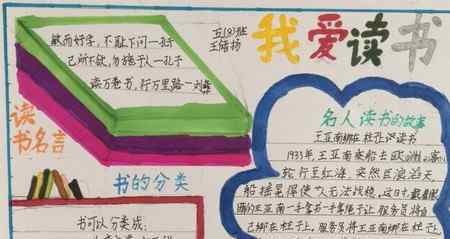 敏而好学，不耻下问—孔子
己所不欲，勿施于人—孔子
读万卷书，行万里路—刘彝
五(8)班
我爱读书
读书名言
书的分类
书可以分类成：
名人读书的故事
王亚南绑在柱子上读书
1933年，王亚南乘船去欧洲。客
轮行至红海，突然巨浪滔天，
船摇晃得使人无法站稳。这时，戴着眼
镜的王亚南一手拿书一手
服务员将自
己绑在柱子上。服务员将王亚南绑在柱子上